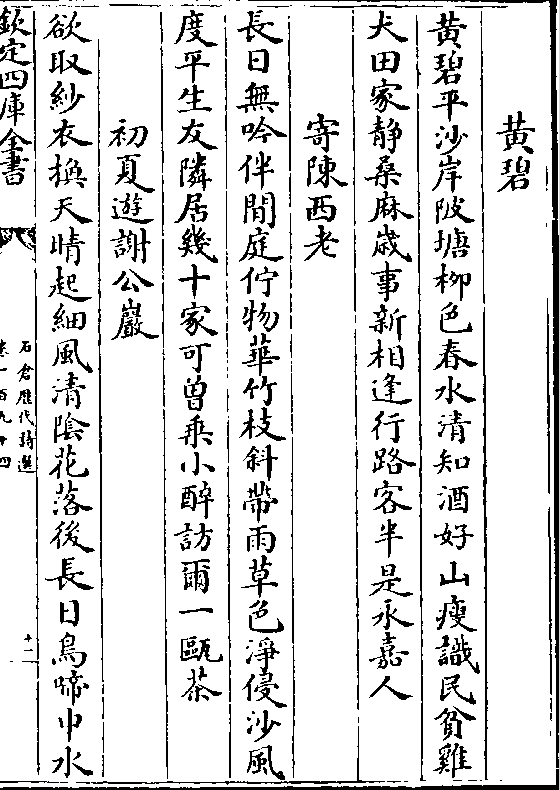 黄碧
黄碧平沙岸陂塘柳色春水清知酒好山瘦識民貧雞
犬田家静桑麻歳事新相逢行路客半是永嘉人
寄陳西老
長日無吟伴閒庭佇物華竹枝斜帶雨草色淨侵沙風
度平生友隣居幾十家可曽乗小醉訪爾一甌茶
初夏遊謝公巖
欲取紗衣換天晴起細風清陰花落後長日鳥啼中水
欽定四庫全書
石倉歴代詩選
卷一百九十四
十二